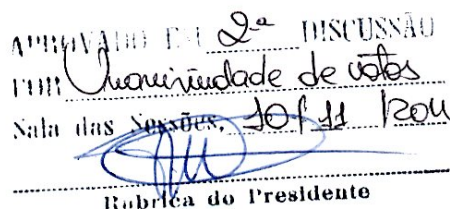 APROVADO EM 2ª DISCUSSÃO
POR Unanimidade de votos
Sala das Sessões, 10/11
Rubrica do Presidente